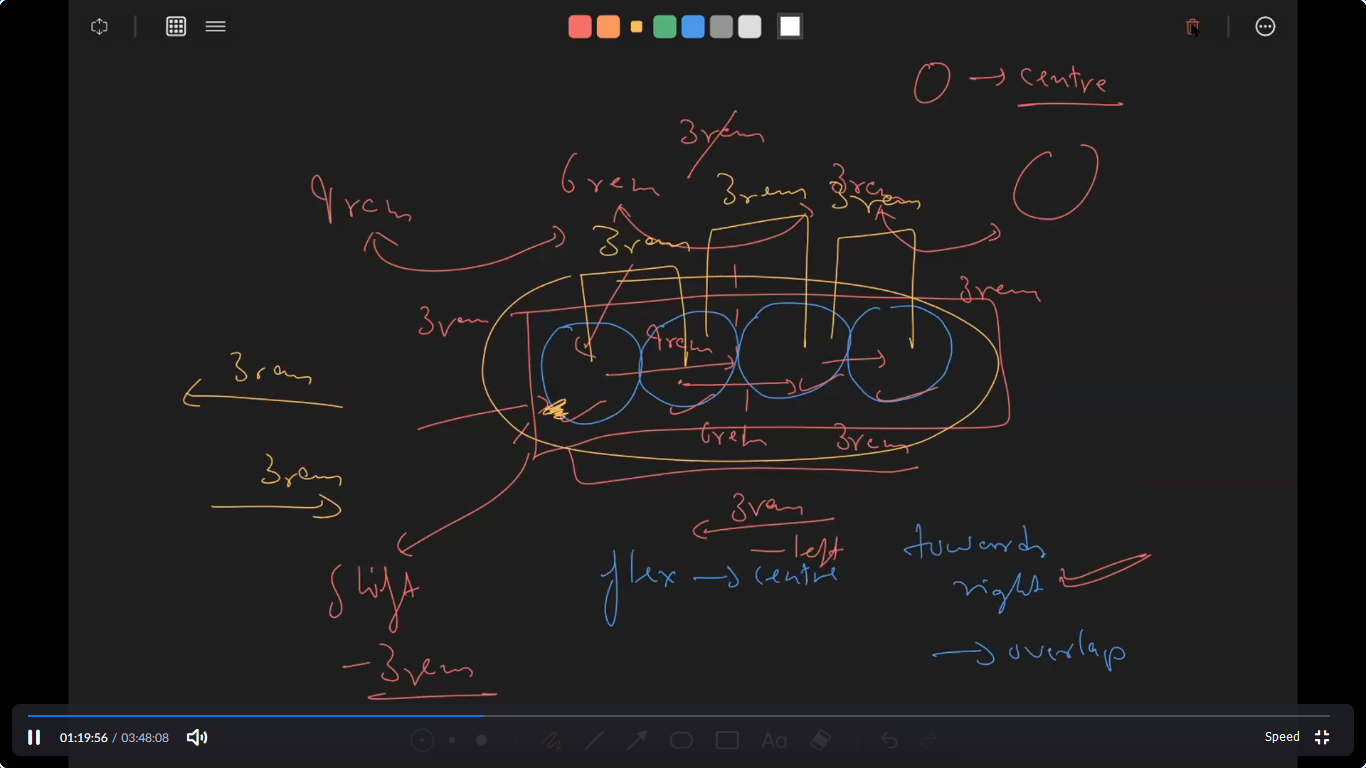 O → centre
3rem
6rem
9rem
3rem
3rem
3rem
3rem
3rem
3rem
9rem
3rem
6rem
3rem
3rem
3rem
– left
flex → centre
towards
right
→ overlap
Shift
– 3rem
01:19:56 / 03:48:08
Speed
Aa